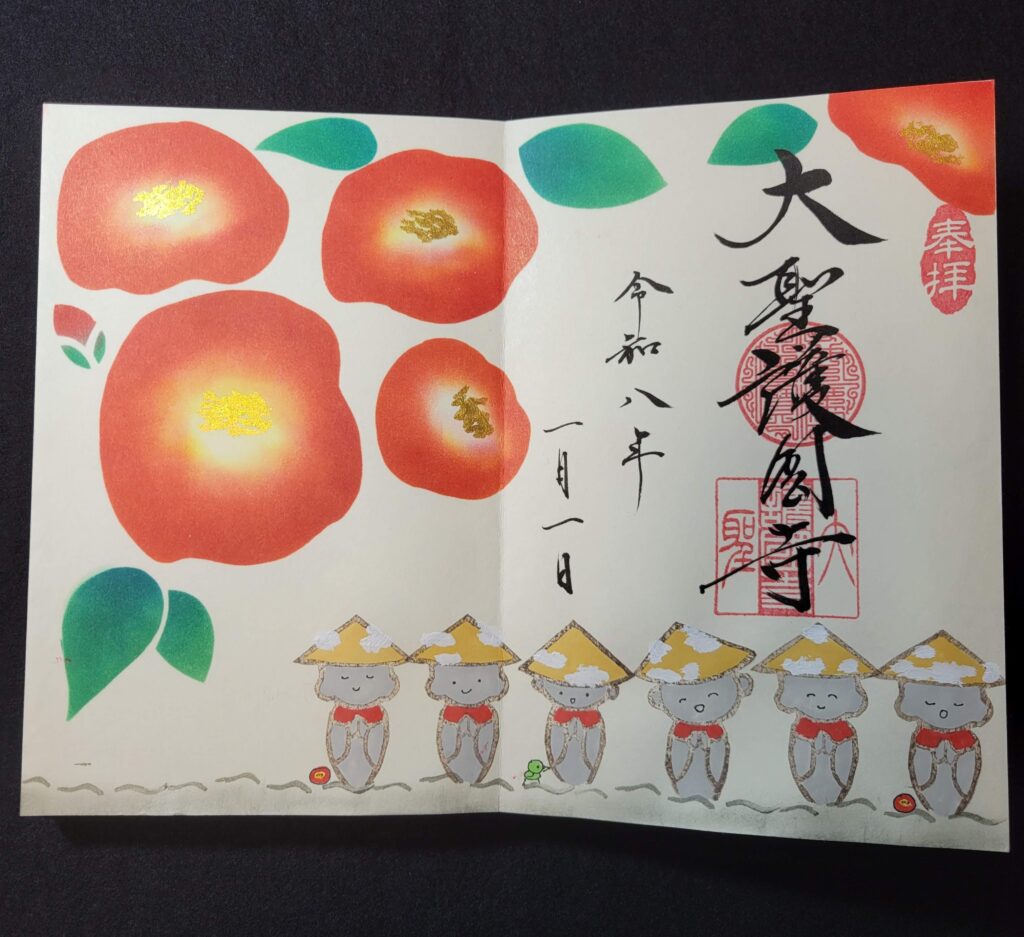 奉拝
大聖護國寺
令和八年
一月一日